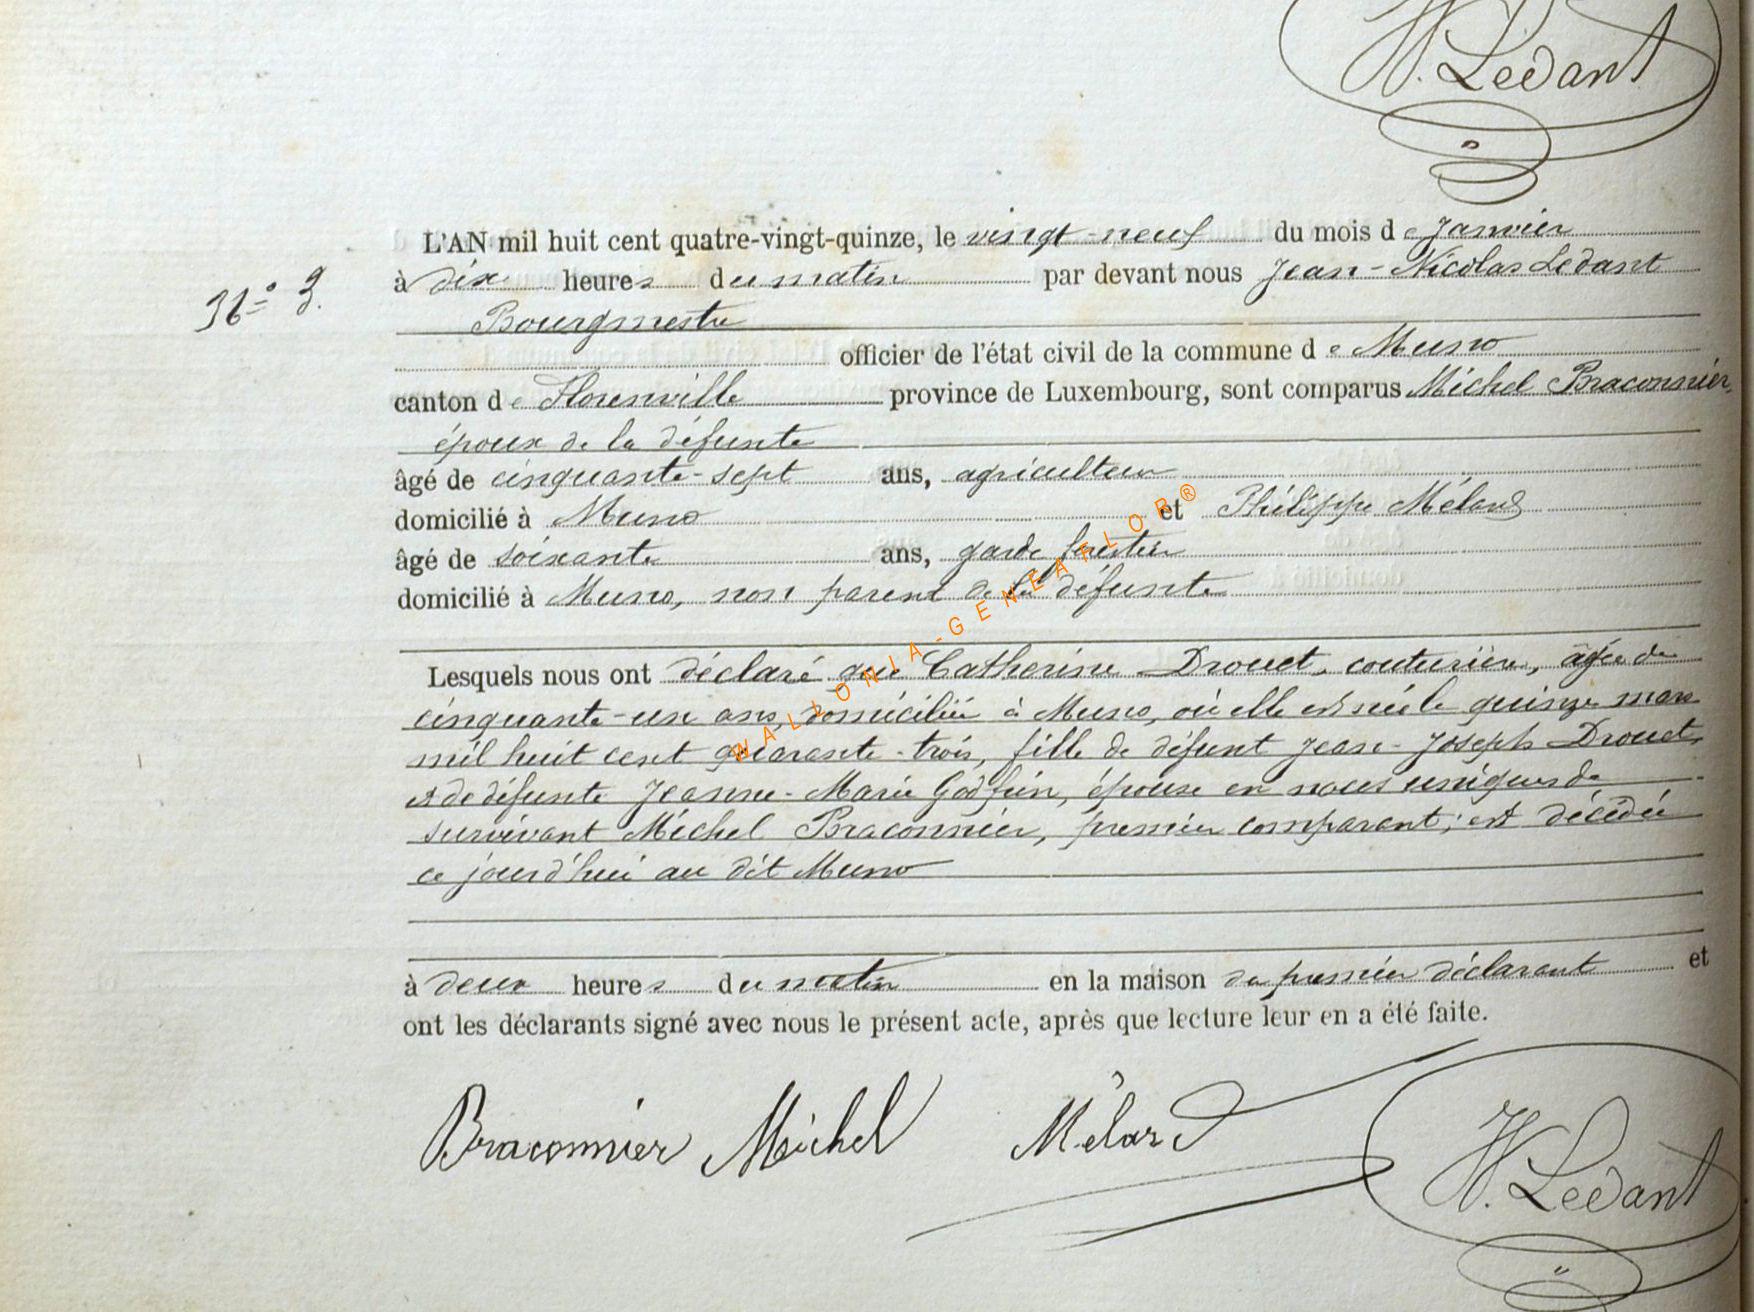 N. Ledant
L'AN mil huit cent quatre-vingt-quinze, le vingt-neuf du mois de Janvier
Nº 3.
à dix heures du matin par devant nous Jean-Nicolas Ledant
Bourgmestre
officier de l'état civil de la commune de Muno
canton de Florenville province de Luxembourg, sont comparus Michel Braconnier,
époux de la défunte
âgé de cinquante-sept ans, agriculteur
domicilié à Muno et Philippe Mélard
âgé de soixante ans, garde forestier
domicilié à Muno, non parent de la défunte
Lesquels nous ont déclaré que Catherine Drouet, couturière, âgée de
cinquante-un ans, domiciliée à Muno, où elle est née le quinze mars
mil huit cent quarante-trois, fille de défunt Jean-Joseph Drouet,
et de défunte Jeanne-Marie Godfrin, épouse en noces uniques de
survivant Michel Braconnier, premier comparant; est décédée
ce jourd'hui au dit Muno
à deux heures du matin en la maison du premier déclarant et
ont les déclarants signé avec nous le présent acte, après que lecture leur en a été faite.
Braconnier Michel Mélard
N. Ledant
WALLONIA-GENEAFLOR®